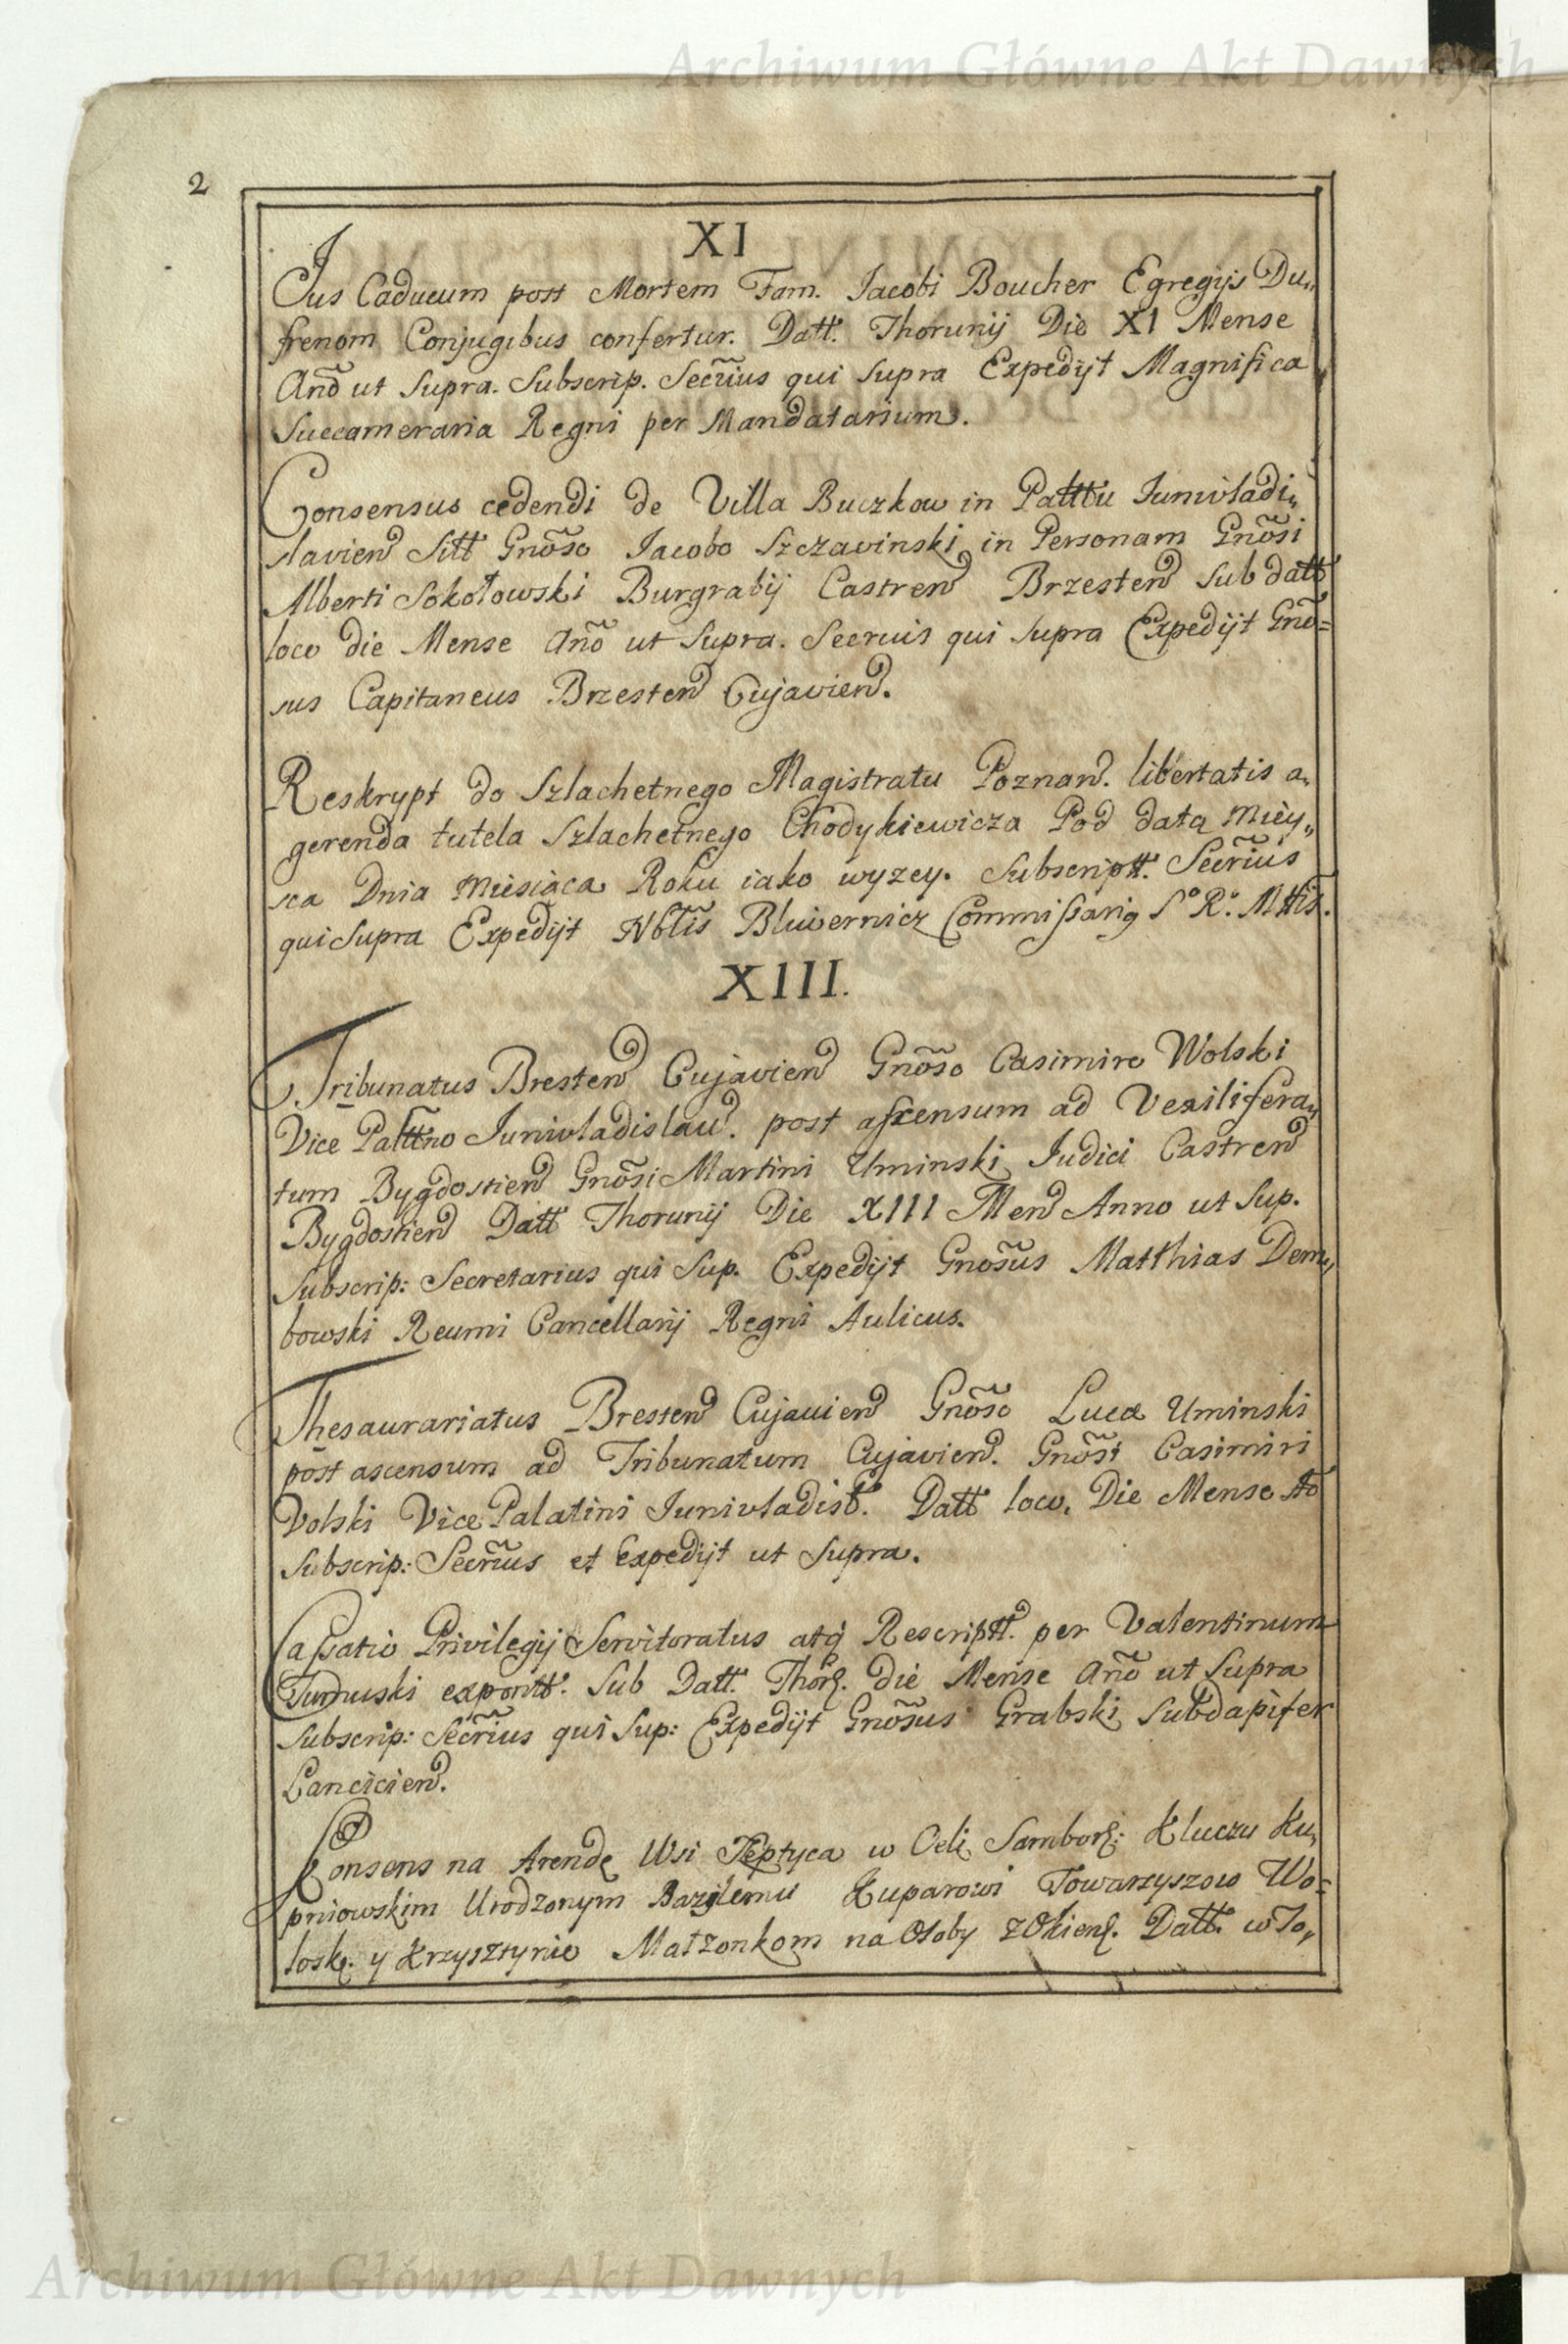 Archiwum Główne Akt Dawnych
2
XI
Jus Caducum post Mortem Fam. Iacobi Boucher Egregijs Du„
frenom Conjugibus confertur. Datt. Thorunij Die XI Mense
Anõ ut Supra. Subscrip. Secrius qui supra Expedijt Magnifica
Succameraria Regni per Mandatarium.
Consensus cedendi de Villa Buczkow in Palttu Junivladi„
slavien Sitt Gnõso Iacobo Szczawinski in Personam Gnõsi
Alberti Sokołowski Burgrabij Castren Brzesten Sub datt
loco die Mense Anõ ut Supra. Secrius qui supra Expedijt Gnõ=
sus Capitaneus Brzesten Cujavien.
Reskrypt do Szlachetnego Magistratu Poznan. libertatis a„
gerenda tutela Szlachetnego Chodykiewicza Pod datą Miey„
sca Dnia Miesiąca Roku iako wyzey. Subscriptt. Secrius
qui Supra Expedijt Nbtis Bluvernicz Commissarig S° R° Mttis.
XIII.
Tribunatus Bresten Cujavien Gnõso Casimiro Wolski
Vice Palttno Junivladislau. post ascensum ad Vexilifera„
tum Bygdostien Gnõsi Martini Uminski Judici Castren
Bygdostien Datt Thorunij Die XIII Men Anno ut Sup.
Subscrip: Secretarius qui Sup. Expedijt Gnõsus Matthias Dem„
bowski Reumi Cancellarij Regni Aulicus.
Thesaurariatus Bresten Cujavien Gnõso Lucæ Uminski
post ascensum ad Tribunatum Cujavien. Gnõsi Casimiri
Volski Vice Palatini Junivladisl. Datt loco, Die Mense Ao
Subscrip: Secrius et Expedijt ut Supra.
Cassatio Privilegij Servitoratus atq Rescriptt. per Valentinum
exportt. Sub Datt. Thor. die Mense Anõ ut Supra
Subscrip: Secrius qui Sup: Expedijt Gnõsus Grabski Subdapifer
Lancicien.
Konsens na Arendę Wsi Tęptyca w Celi Sambor: Kluczu Ku„
pniowskim Urodzonym Bazylemu Żuparowi Towarzyszow Wo=
łosk. y Krzysztynie Małżonkom na Osoby z Okien. Datt. w To„
Archiwum Główne Akt Dawnych